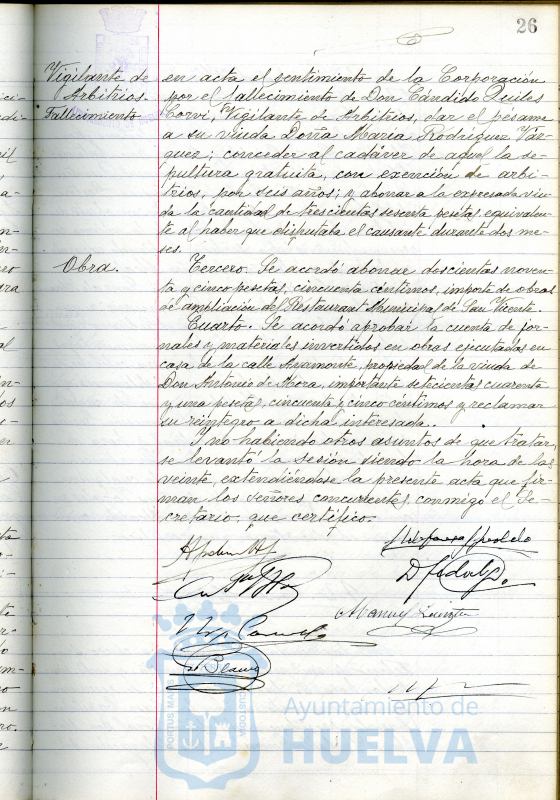 26
Vigilante de
Arbitrios.
Fallecimiento
en acta el sentimiento de la Corporación
por el fallecimiento de Don Cándido Quiles
Corvi, Vigilante de Arbitrios, dar el pésame
a su viuda Doña Maria Rodríguez Váz-
quez; conceder al cadáver de aquel la se-
pultura gratuita, con exención de arbi-
trios, por seis años; y abonar a la expresada viu-
da la cantidad de trescientas sesenta pesetas, equivalen-
te al haber que disfrutaba el causante durante dos me-
ses.
Obra.
Tercero. Se acordó abonar doscientas noven-
ta y cinco pesetas, cincuenta céntimos, importe de obras
de ampliación del Restaurant Municipal de San Vicente.
Cuarto. Se acordó aprobar la cuenta de jor-
nales y materiales invertidos en obras ejecutadas en
casa de la calle Ayamonte, propiedad de la viuda de
Don Antonio de Mora, importante setecientas cuarenta
y una pesetas, cincuenta y cinco céntimos y reclamar
su reintegro a dicha interesada.
Y no habiendo otros asuntos de que tratar,
se levantó la sesión siendo la hora de las
veinte, extendiéndose la presente acta que fir-
man los Señores concurrentes, conmigo el Se-
cretario, que certifico.
Manuel
Blanco
PORTUS MARIS
CUSTODIA
Ayuntamiento de
HUELVA